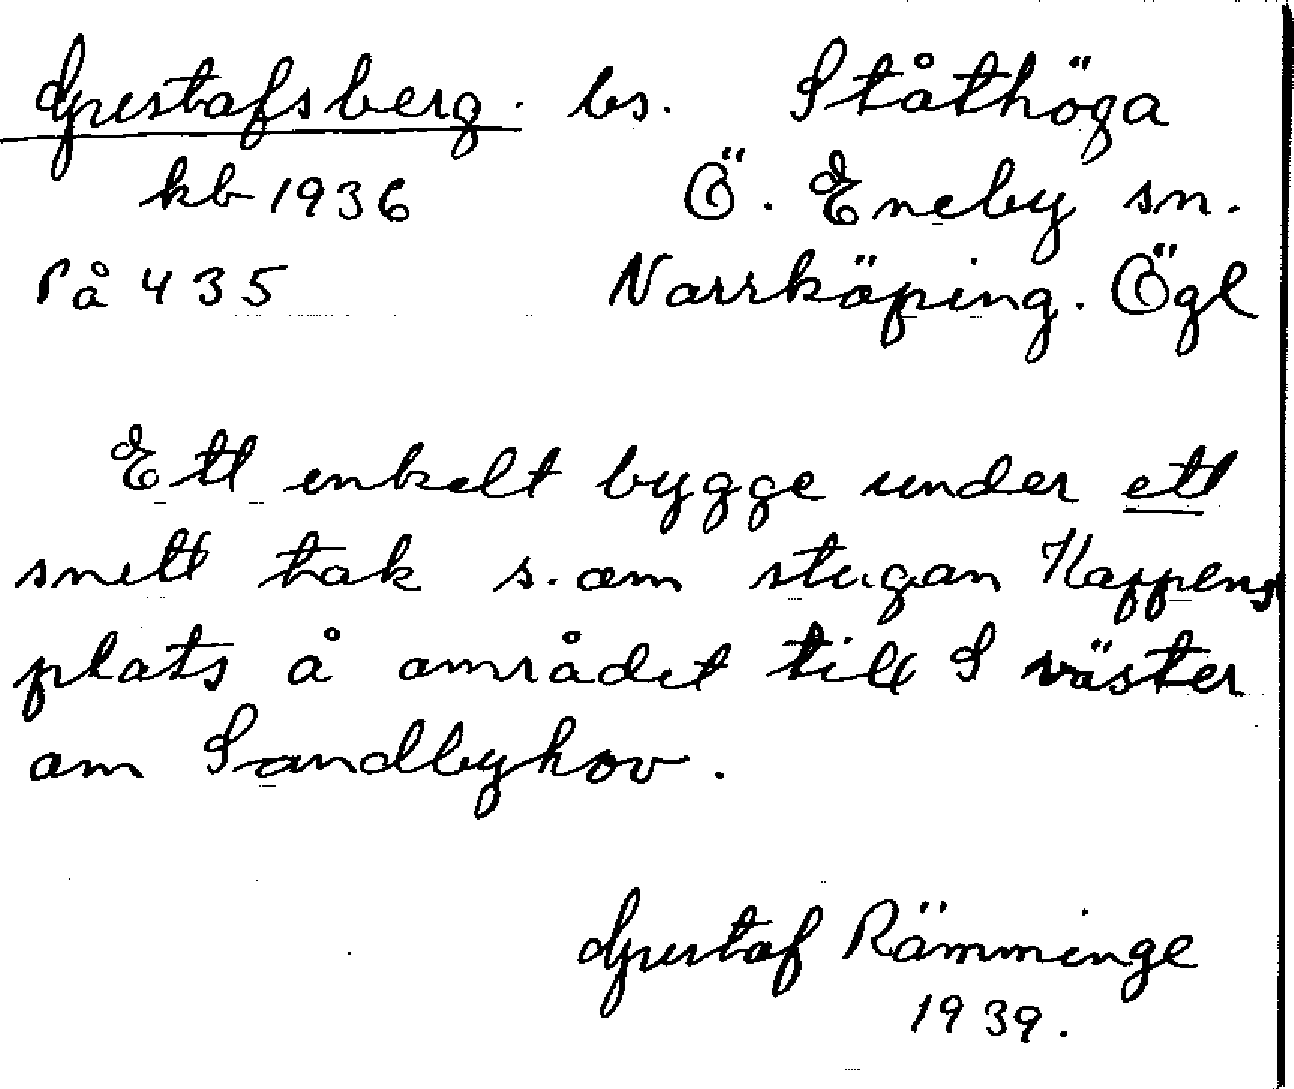 Gustafsberg. bs. Ståthöga
kb 1936 Ö. Eneby sn.
På 435 Norrköping. Ögl
Ett enkelt bygge under ett
snett tak s. om stugan Hoppens
plats å området till S väster
om Sandbyhov.
Gustaf Rämminge
1939.